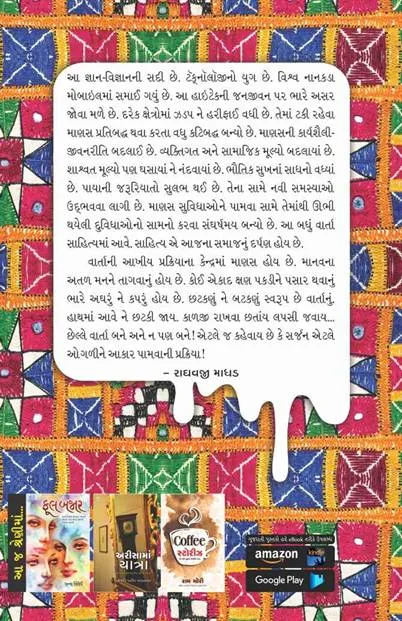 આ જ્ઞાન-વિજ્ઞાનની સદી છે. ટેક્નૉલૉજીનો યુગ છે. વિશ્વ નાનકડા
મોબાઇલમાં સમાઈ ગયું છે. આ હાઇટેકની જનજીવન પર ભારે અસર
જોવા મળે છે. દરેક ક્ષેત્રોમાં ઝડપ ને હરીફાઈ વધી છે. તેમાં ટકી રહેવા
માણસ પ્રતિબદ્ધ થવા કરતા વધુ કટિબદ્ધ બન્યો છે. માણસની કાર્યશૈલી-
જીવનરીતિ બદલાઈ છે. વ્યક્તિગત અને સામાજિક મૂલ્યો બદલાયાં છે.
શાશ્વત મૂલ્યો પણ ઘસાયાં ને નંદવાયાં છે. ભૌતિક સુખનાં સાધનો વધ્યાં
છે. પાયાની જરૂરિયાતો સુલભ થઈ છે. તેના સામે નવી સમસ્યાઓ
ઉદ્‌ભવવા લાગી છે. માણસ સુવિધાઓને પામવા સામે તેમાંથી ઊભી
થયેલી દુવિધાઓનો સામનો કરવા સંઘર્ષમય બન્યો છે. આ બધું વાર્તા
સાહિત્યમાં આવે. સાહિત્ય એ આજના સમાજનું દર્પણ હોય છે.
વાર્તાની આખીય પ્રક્રિયાના કેન્દ્રમાં માણસ હોય છે. માનવના
અતળ મનને તાગવાનું હોય છે. કોઈ એકાદ ક્ષણ પકડીને પસાર થવાનું
ભારે અઘરું ને કપરું હોય છે. છટકણું ને બટકણું સ્વરૂપ છે વાર્તાનું.
હાથમાં આવે ને છટકી જાય. કાળજી રાખવા છતાંય લપસી જવાય...
છેલ્લે વાર્તા બને અને ન પણ બને! એટલે જ કહેવાય છે કે સર્જન એટલે
ઓગળીને આકાર પામવાની પ્રક્રિયા!
– રાઘવજી માધડ
આ જ શ્રેણીમાં...
ફૂલબહાર
અરીસામાં
યાત્રા
Coffee
સ્ટોરીઝ
રામ મોરી
amazon
kindle
Google Play